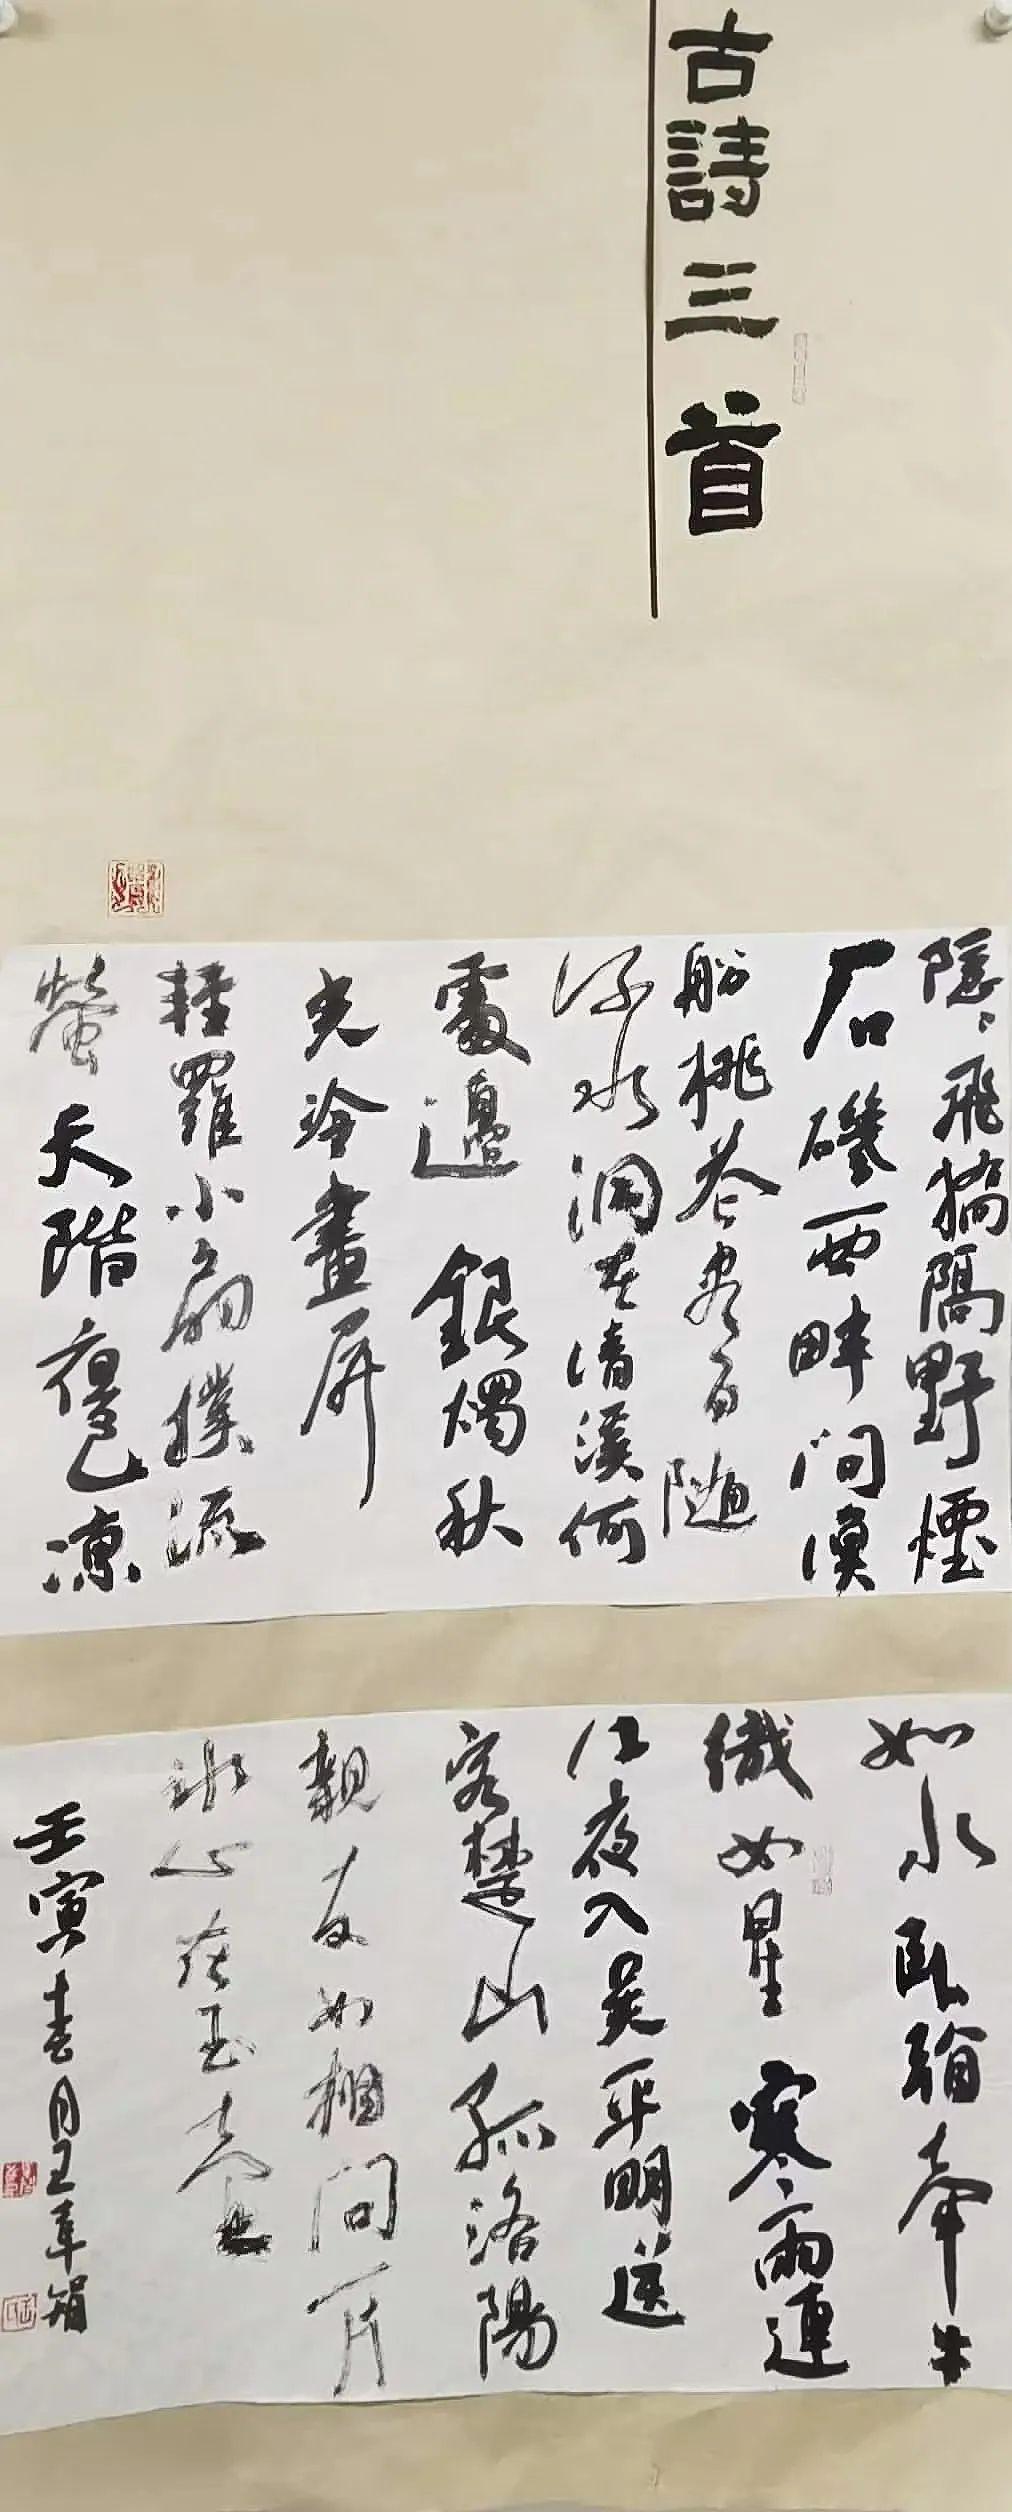 古詩三首
隱隱飛橋隔野煙
石磯西畔問漁
船桃花盡日隨
流水洞在清溪何
處邊銀燭秋
光冷畫屏
輕羅小扇撲流
螢天階夜色涼
如水臥牽牛
織女星寒雨連
江夜入吳平明送
客楚山孤洛陽
親友如相問一片
冰心在玉壺
壬寅春月王